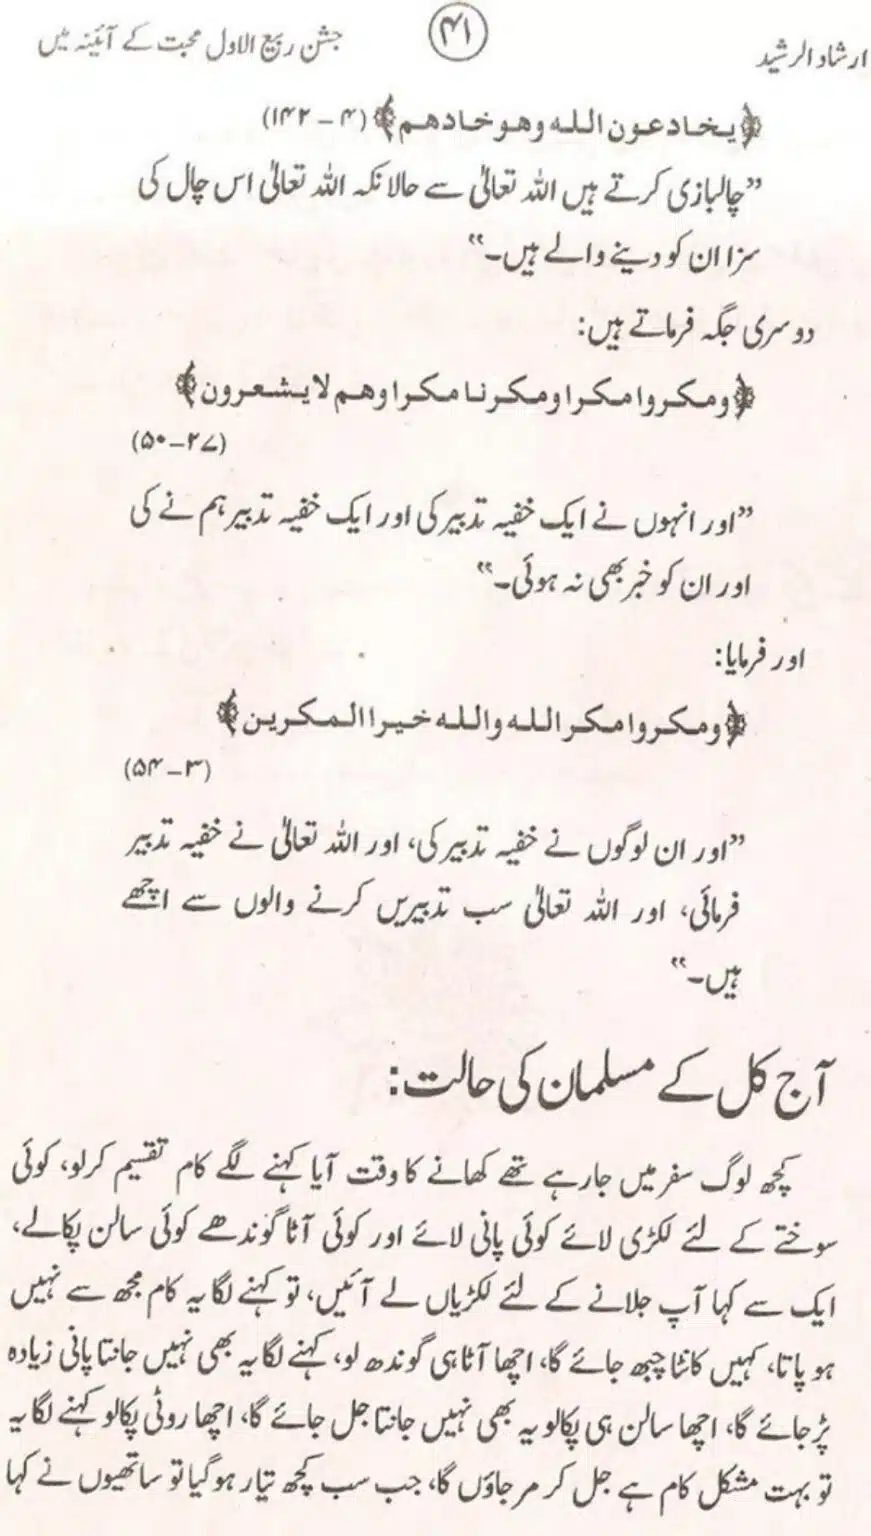 ارشاد الرشید
۴۱
جشن ربیع الاول محبت کے آئینہ میں
﴿یخادعون اللہ وھو خادھم﴾ (۴-۱۴۲)
”چالبازی کرتے ہیں اللہ تعالیٰ سے حالانکہ اللہ تعالیٰ اس چال کی
سزا ان کو دینے والے ہیں۔“
دوسری جگہ فرماتے ہیں:
﴿ومکروا مکرا ومکرنا مکرا وھم لا یشعرون﴾
(۲۷-۵۰)
”اور انہوں نے ایک خفیہ تدبیر کی اور ایک خفیہ تدبیر ہم نے کی
اور ان کو خبر بھی نہ ہوئی۔“
اور فرمایا:
﴿ومکروا مکر اللہ واللہ خیرا المکرین﴾
(۳-۵۴)
”اور ان لوگوں نے خفیہ تدبیر کی، اور اللہ تعالیٰ نے خفیہ تدبیر
فرمائی، اور اللہ تعالیٰ سب تدبیریں کرنے والوں سے اچھے
ہیں۔“
آج کل کے مسلمان کی حالت:
کچھ لوگ سفر میں جارہے تھے کھانے کا وقت آیا کہنے لگے کام تقسیم کرلو، کوئی
سوختے کے لئے لکڑی لائے کوئی پانی لائے اور کوئی آٹا گوندھے کوئی سالن پکالے،
ایک سے کہا آپ جلانے کے لئے لکڑیاں لے آئیں، تو کہنے لگا یہ کام مجھ سے نہیں
ہو پاتا، کہیں کانٹا چبھ جائے گا، اچھا آٹا ہی گوندھ لو، کہنے لگا یہ بھی نہیں جانتا پانی زیادہ
پڑ جائے گا، اچھا سالن ہی پکالو یہ بھی نہیں جانتا جل جائے گا، اچھا روٹی پکالو کہنے لگا یہ
تو بہت مشکل کام ہے جل کر مر جاؤں گا، جب سب کچھ تیار ہوگیا تو ساتھیوں نے کہا